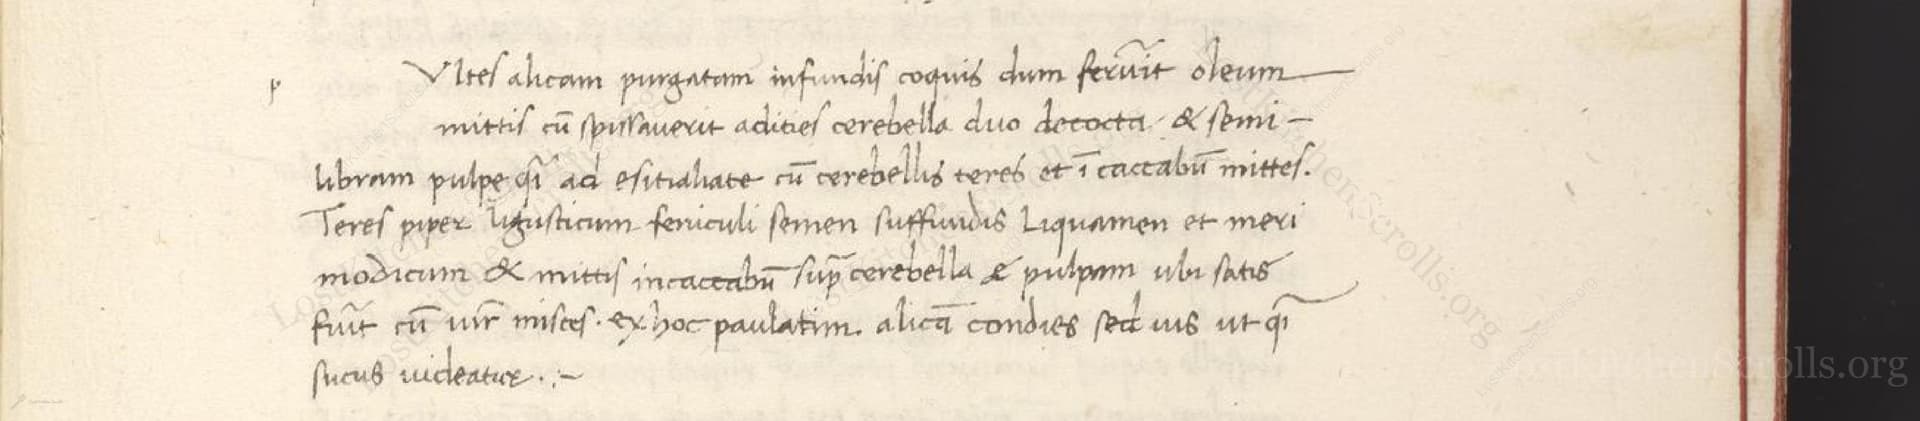 p Vltes alicam purgatam infundis coquis dum feruīt oleum
mittis cū spissauerit adities cerebella duo decocta & semi-
libram pulpe qī ad esitialiate cū cerebellis teres et ī caccabū mittes.
Teres piper ligusticum feniculi semen suffundis Liquamen et meri
modicum & mittis incaccabū sup̄ cerebella & pulpam ubi satis
fuīt cū iur̄ misces. ex hoc paulatim. alicā condies sed uis ut qī
sucus uideatur.:-
LostKitchenScrolls.org